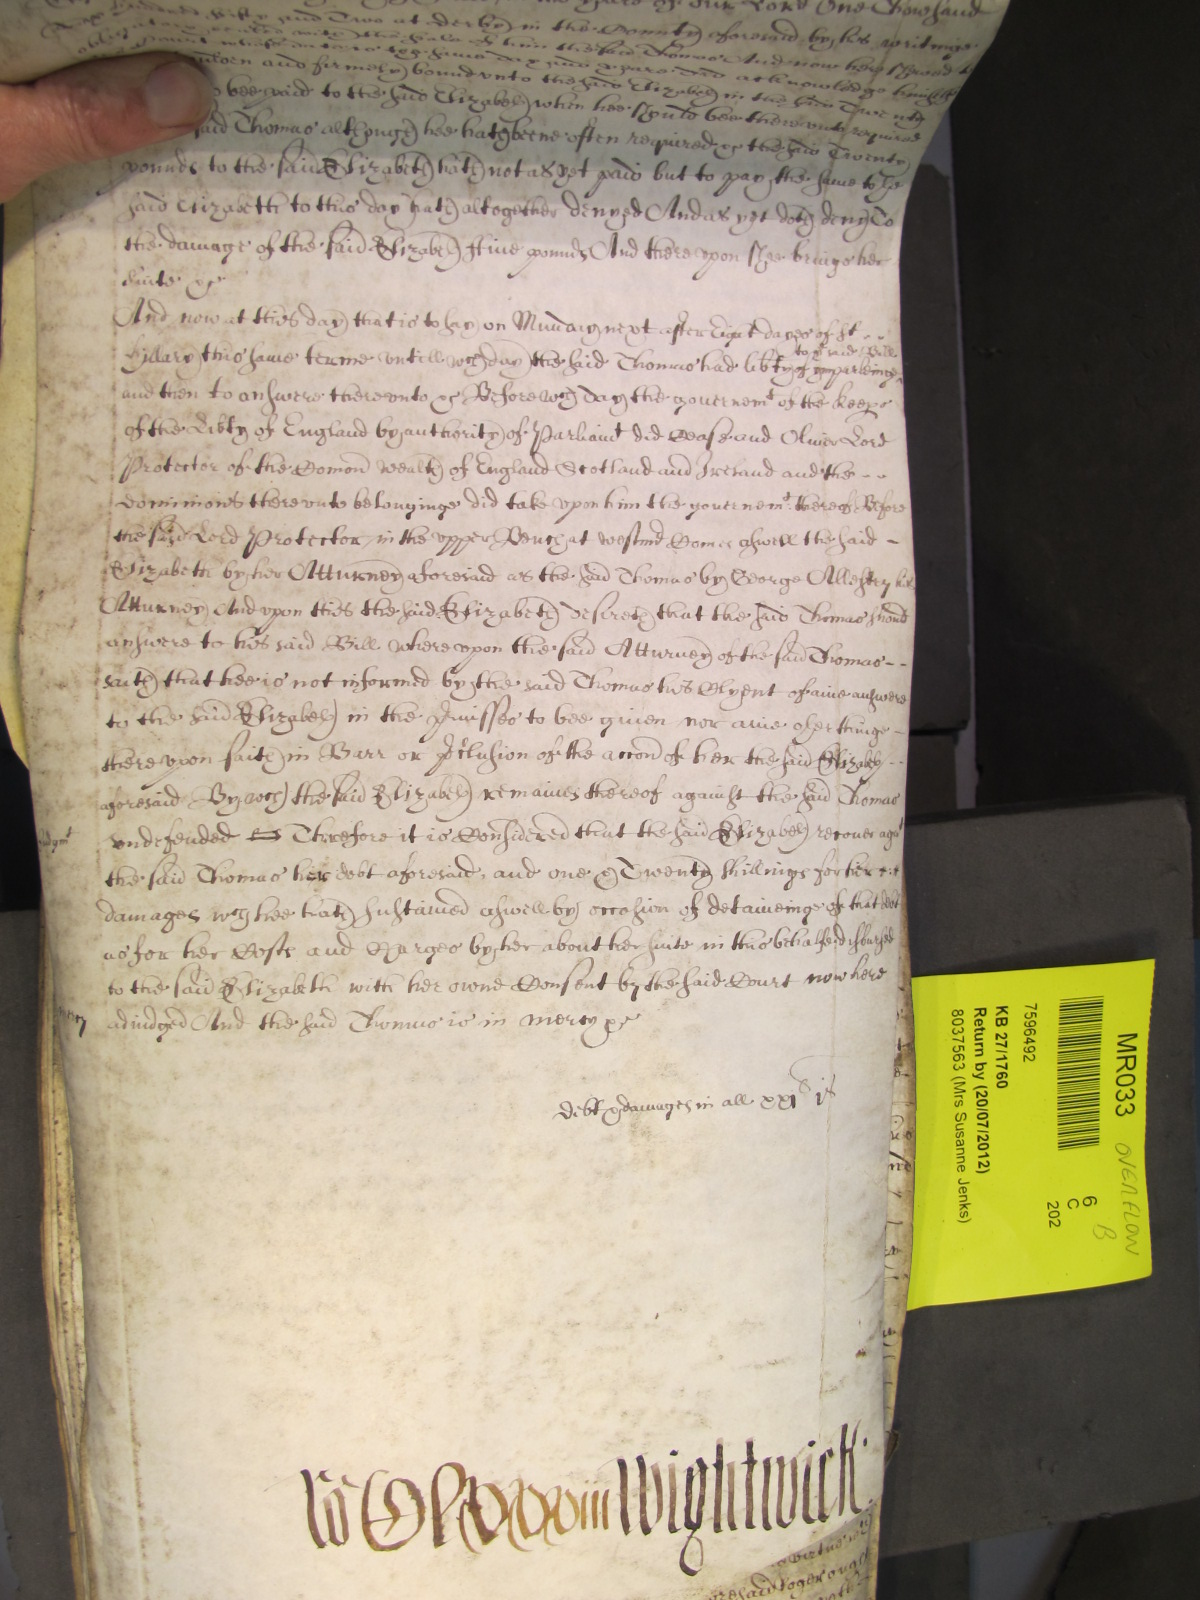 yeare of our Lord One Thousand
hundred fifty and Two at derby in the County aforesaid by his writinge
with the seale of him the said Thomas And now here shewed
did acknowledge himselfe
and firmely bound unto the said Elizabeth in the said Twenty
bee paid to the said Elizabeth when hee should bee thereunto required
said Thomas although hee hath beene often required &c the said Twenty
pounds to the said Elizabeth hath not as yet paid but to pay the same to the
said Elizabeth to this day hath altogether denyed And as yet doth deny To
the damage of the said Elizabeth five pounds And thereupon shee brings her
suite &c
And now at this day that is to say on Munday next after Eight dayes of St
Hillary this same terme untill wch day the said Thomas had libty to ye said Bill of imparleinge
and then to answere thereunto &c Before wch day the governemt of the keeprs
of the Libty of England by authority of Parliamt did Cease and Oliver Lord
Protector of the Comon wealth of England Scotland and Ireland and the
dominions thereunto belonginge did take upon him the governemt thereof Before
the said Lord Protector in the upper Bench at westmr Comes aswell the said
Elizabeth by her Atturney aforesaid as the said Thomas by George Allestry his
Atturney And upon this the said Elizabeth desireth that the said Thomas should
answere to his said Bill whereupon the said Atturney of the said Thomas
saith that hee is not informed by the said Thomas his Clyent of anie answere
to the said Elizabeth in the Pmisses to bee given nor anie other thinge
thereupon saith in Barr or Pclusion of the accon of her the said Elizabeth
aforesaid By wch the said Elizabeth remaines thereof against the said Thomas
Judgmt undefended Therefore it is Considered that the said Elizabeth recover agt
the said Thomas her debt aforesaid, and one & Twenty shillings for her
damages wch hee hath sustained aswell by occasion of detaineinge of that debt
as for her Costs and Charges by her about her suite in this behalfe disbursed
to the said Elizabeth with her owne Consent by the said Court now here
mercy adiudged And the said Thomas is in mercy &c
debt & damages in all xxi£ is
Wightwick
MR033 OVERFLOW
B
6
C
202
7596492
KB 27/1760
Return by (20/07/2012)
8037563 (Mrs Susanne Jenks)